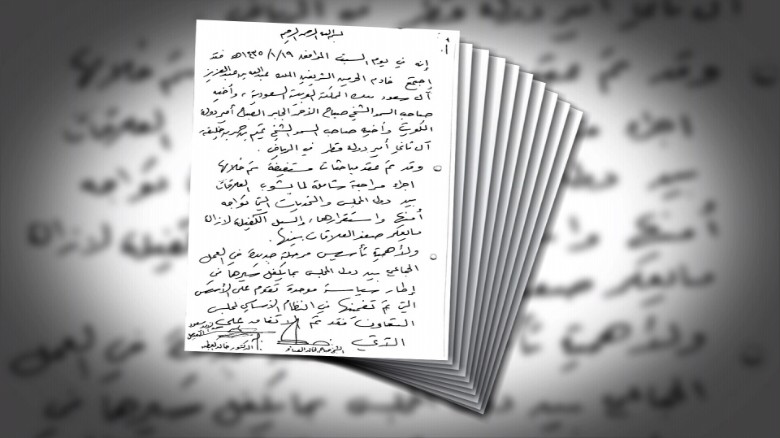 بسم الله الرحمن الرحيم
إنه في يوم السبت الموافق ١٤٣٥/١/١٩هـ فقد
اجتمع خادم الحرمين الشريفين الملك عبدالله بن عبدالعزيز
آل سعود ملك المملكة العربية السعودية، وأخيه
صاحب السمو الشيخ صباح الأحمد الجابر الصباح أمير دولة
الكويت وأخيه صاحب السمو الشيخ تميم بن حمد بن خليفه
آل ثاني أمير دولة قطر في الرياض.
وقد تم عقد مباحثات مستفيضة تم خلالها
اجراء مراجعة شاملة لما يشوب العلاقات
بين دول المجلس والتحديات التي تواجه
أمنها واستقرارها، والسبل الكفيلة لازالة
مايعكر صفو العلاقات بينها.
ولأهمية تأسيس مرحلة جديدة في العمل
الجماعي بين دول المجلس بما يكفل سيرها في
إطار سياسة موحدة تقوم على الأسس
التي تم تضمينها في النظام الأساسي لمجلس
التعاون فقد تم الاتفاق على
الآتي